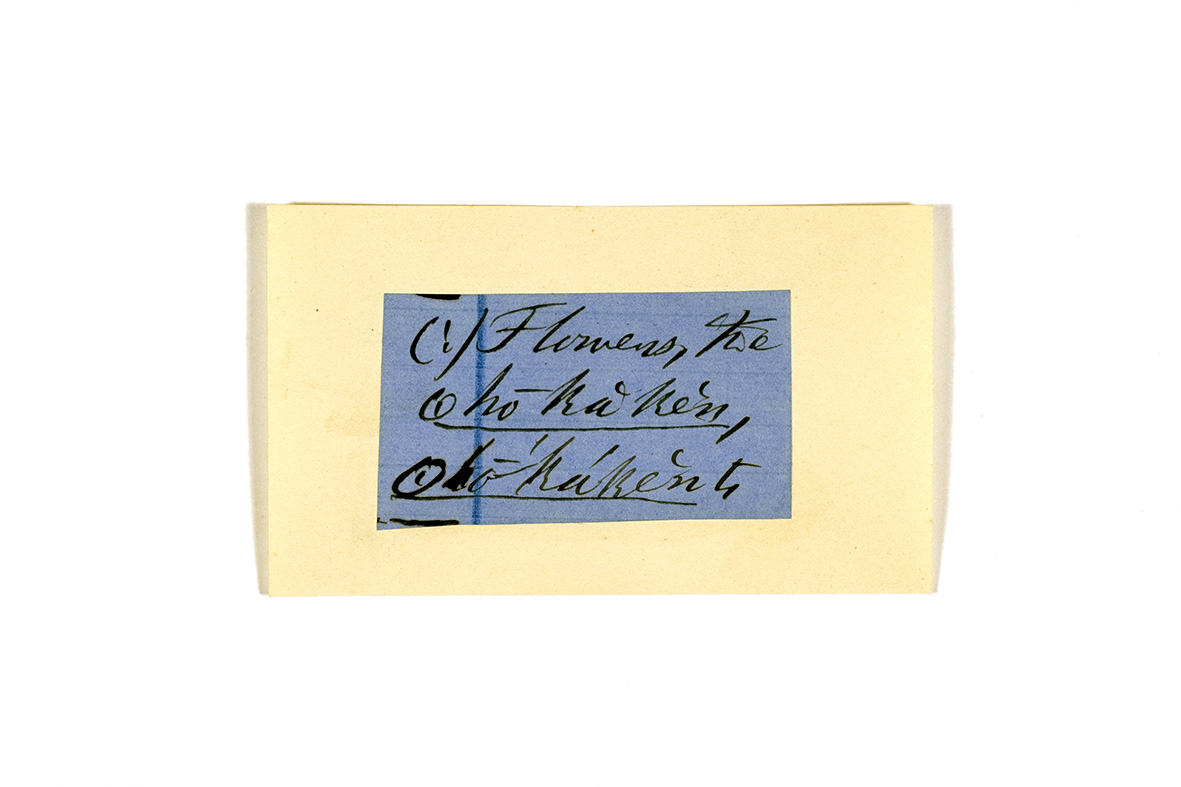 (i) Flowers, the
ohō kà kèn,
ohṓ kákèn t,